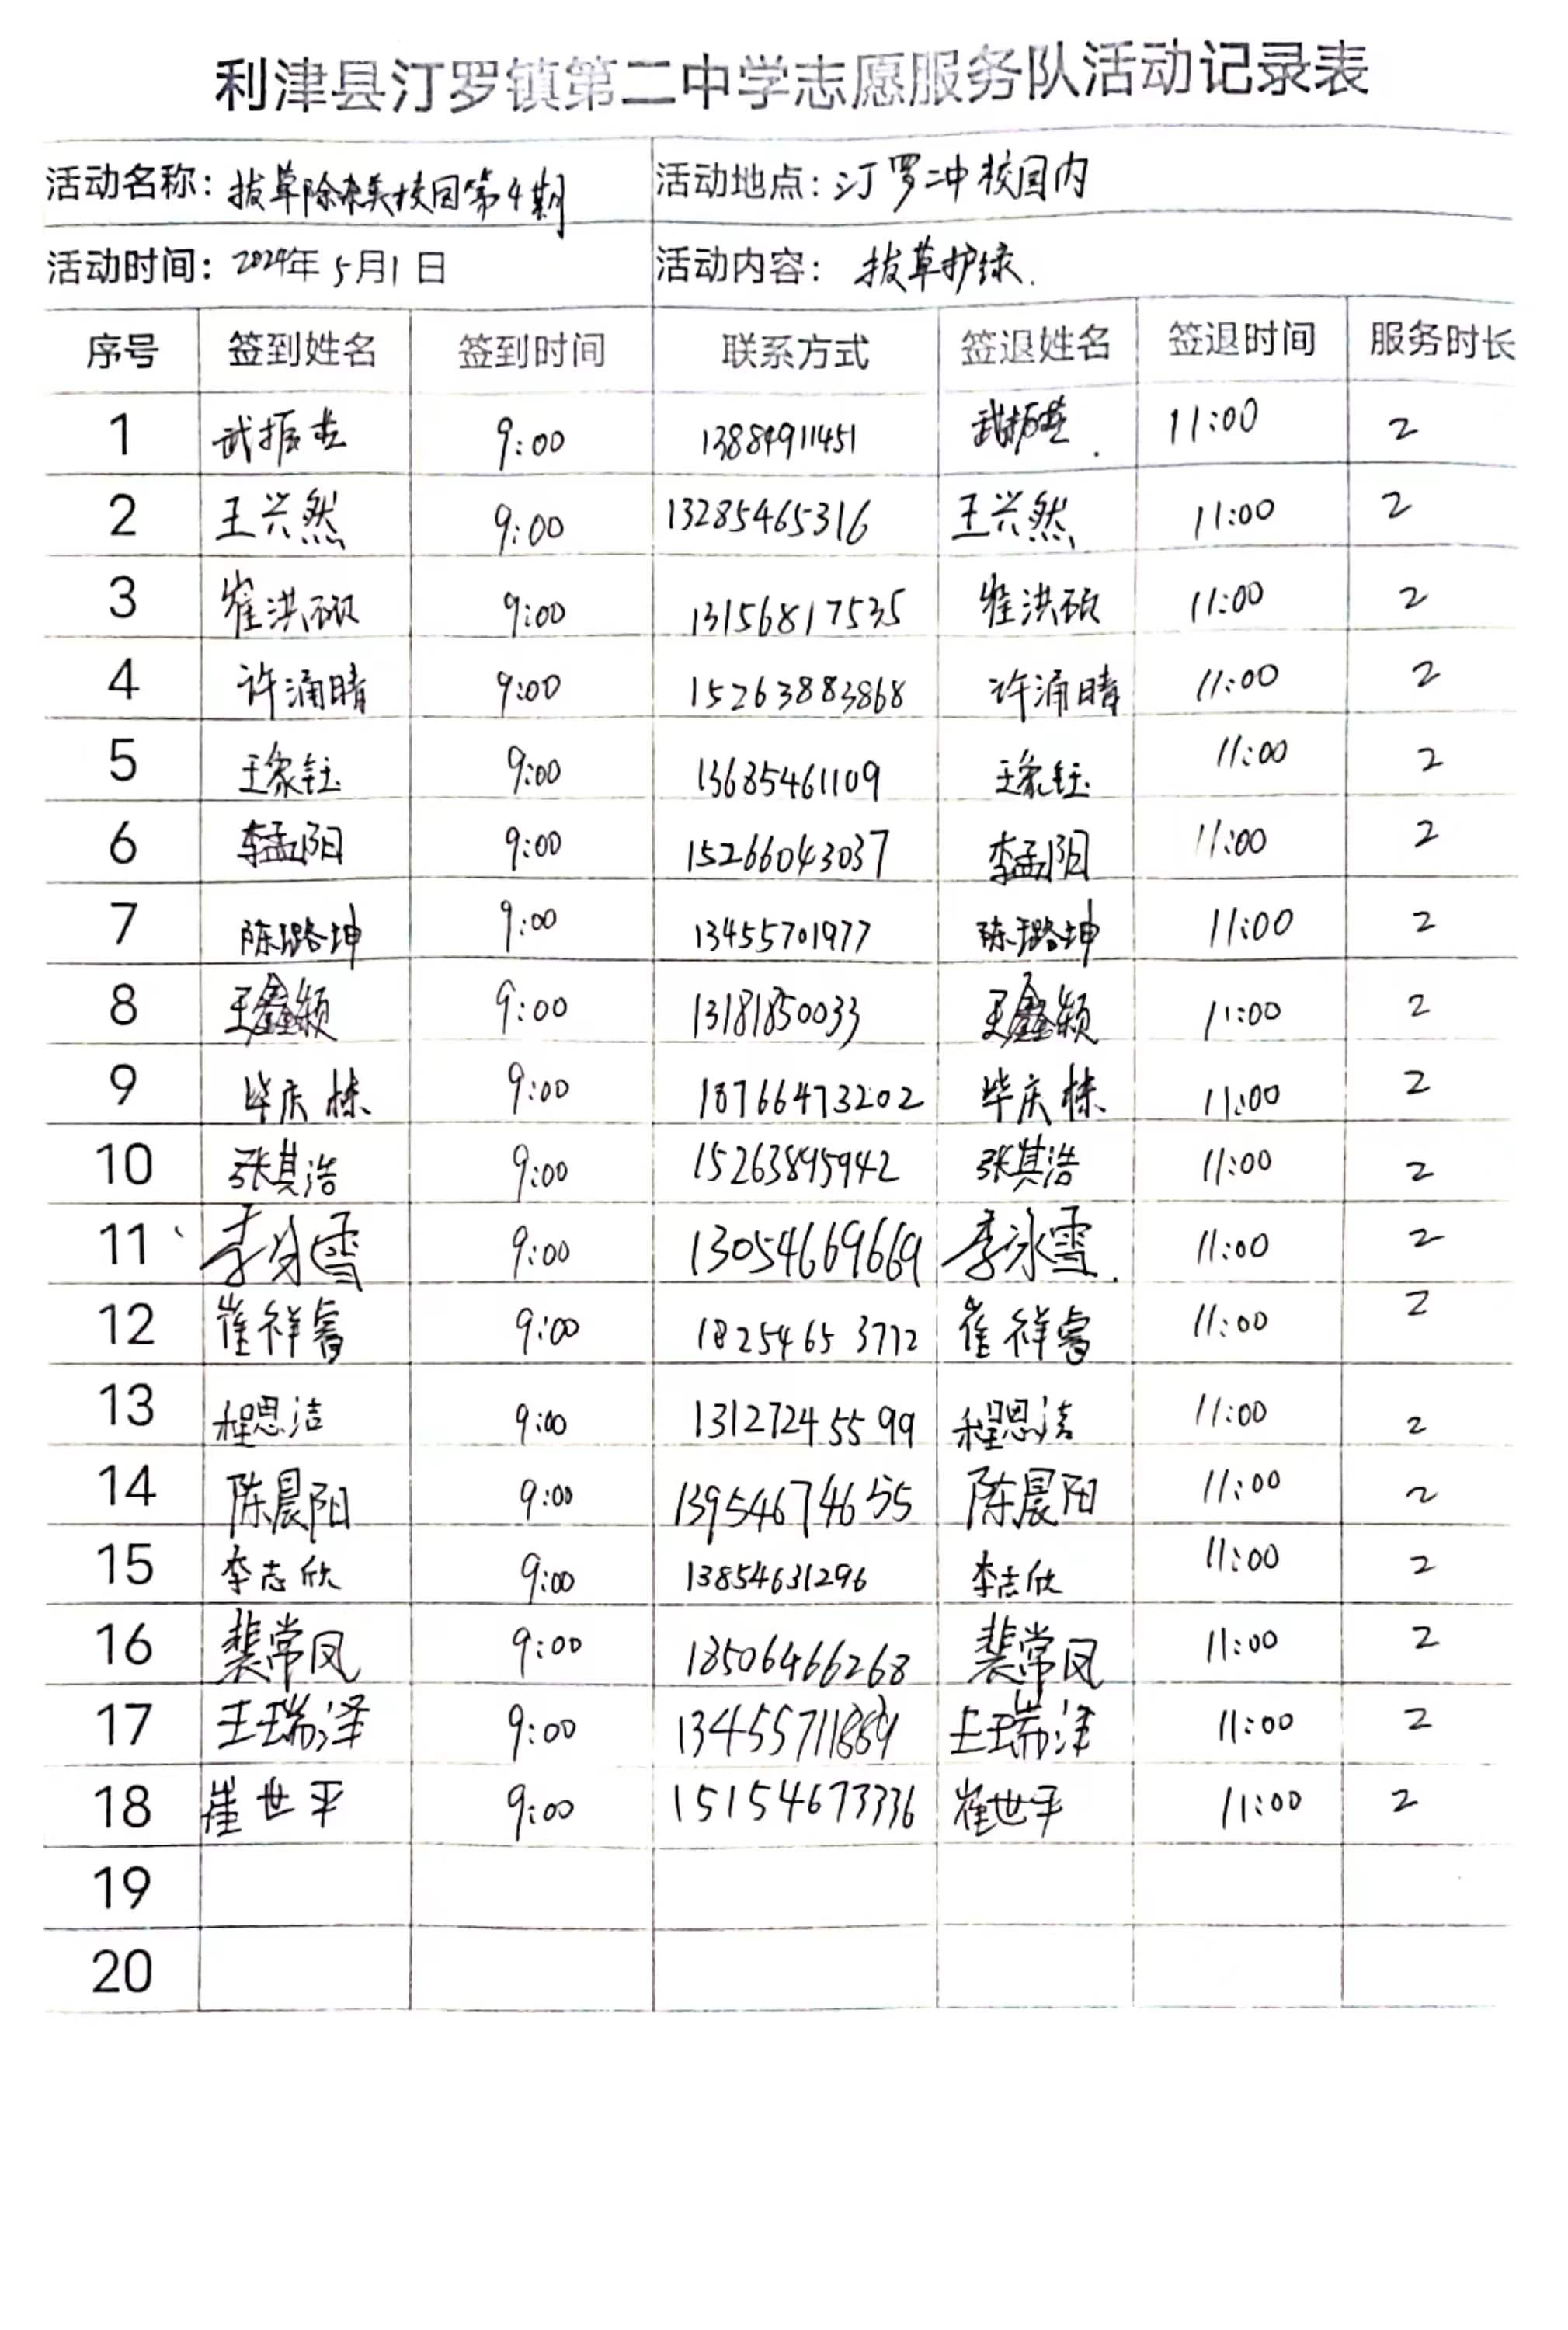 利津县汀罗镇第二中学志愿服务队活动记录表
活动名称: 拔草除 美校园第4期 活动地点: 汀罗二中校园内
活动时间: 2024年5月1日 活动内容: 拔草护绿.
序号 签到姓名 签到时间 联系方式 签退姓名 签退时间 服务时长
1 武振 9:00 13884911451 武振 11:00 2
2 王兴然 9:00 13285465316 王兴然 11:00 2
3 崔洪硕 9:00 13156817535 崔洪硕 11:00 2
4 许涌晴 9:00 15263883868 许涌晴 11:00 2
5 王家钰 9:00 13685461109 王家钰 11:00 2
6 李孟阳 9:00 15266043037 李孟阳 11:00 2
7 陈璐坤 9:00 13455701977 陈璐坤 11:00 2
8 王鑫颖 9:00 13181850033 王鑫颖 11:00 2
9 毕庆栋 9:00 18766473202 毕庆栋 11:00 2
10 张其浩 9:00 15263895942 张其浩 11:00 2
11 李泳雪 9:00 13054669669 李泳雪. 11:00 2
12 崔祥睿 9:00 18254653772 崔祥睿 11:00 2
13 程思洁 9:00 13127245599 程思洁 11:00 2
14 陈晨阳 9:00 13954674655 陈晨阳 11:00 2
15 李志欣 9:00 13854631296 李志欣 11:00 2
16 裴常凤 9:00 18506466268 裴常凤 11:00 2
17 王瑞泽 9:00 13455711889 王瑞泽 11:00 2
18 崔世平 9:00 15154673336 崔世平 11:00 2
19
20